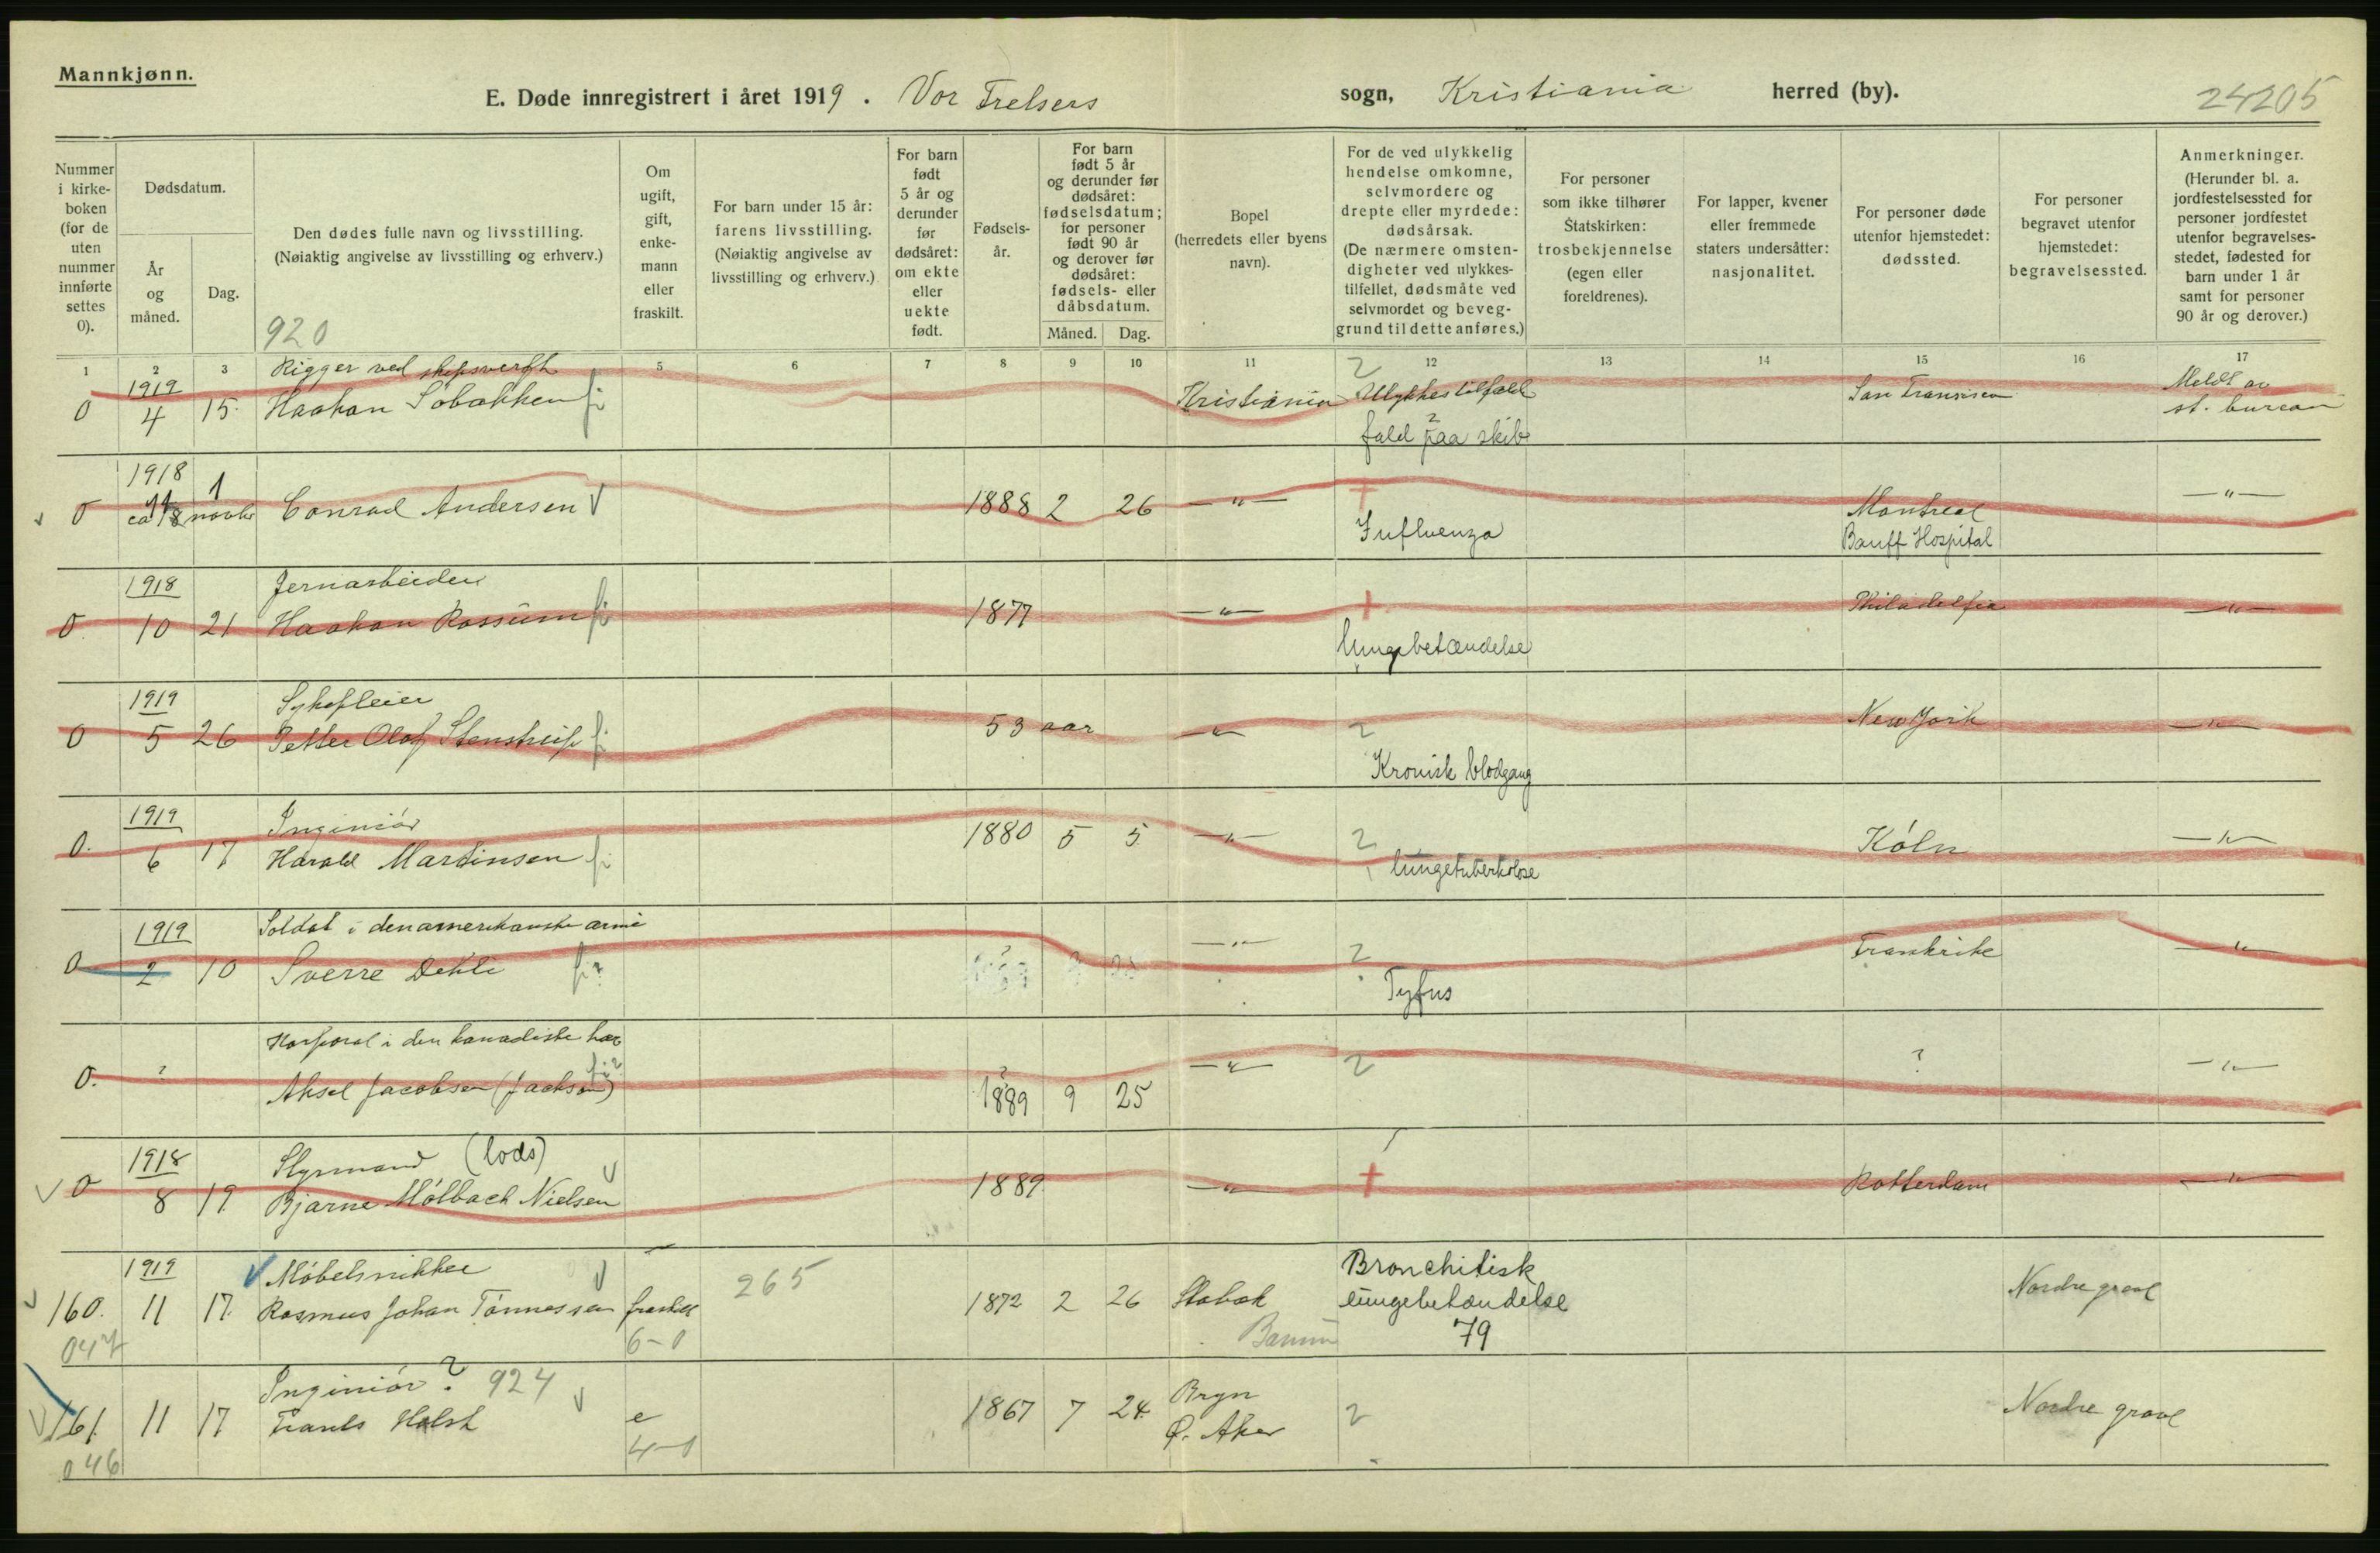 Mannkjønn.
E. Døde innregistrert i året 1919. Vor Frelsers sogn, Kristiania herred (by).
24205
Nummer i kirke-boken (for de uten nummer innførte settes 0).
Dødsdatum.
År og måned.
Dag.
Den dødes fulle navn og livsstilling.
(Nøiaktig angivelse av livsstilling og erhverv.)
920
Om ugift, gift, enke-mann eller fraskilt.
For barn under 15 år: farens livsstilling.
(Nøiaktig angivelse av livsstilling og erhverv.)
For barn født 5 år og derunder før dødsåret: om ekte eller uekte født.
Fødsels-år.
For barn født 5 år og derunder før dødsåret: fødselsdatum; for personer født 90 år og derover før dødsåret: fødsels- eller dåbsdatum.
Måned. Dag.
Bopel (herredets eller byens navn).
For de ved ulykkelig hendelse omkomne, selvmordere og drepte eller myrdede: dødsårsak.
(De nærmere omsten-digheter ved ulykkes-tilfellet, dødsmåte ved selvmordet og beveg-grund til dette anføres.)
For personer som ikke tilhører Statskirken: trosbekjennelse (egen eller foreldrenes).
For lapper, kvener eller fremmede staters undersåtter: nasjonalitet.
For personer døde utenfor hjemstedet: dødssted.
For personer begravet utenfor hjemstedet: begravelsessted.
Anmerkninger.
(Herunder bl. a. jordfestelsessted for personer jordfestet utenfor begravelses-stedet, fødested for barn under 1 år samt for personer 90 år og derover.)
1 2 3 5 6 7 8 9 10 11 12 13 14 15 16 17
1919 Rigger ved skipsverft 2 Meldt av
0 4 15. Haakon Sobakken fi Kristiania Ulykkestilfæld San Fransisco st. bureau
fald paa skib
1918 1
0 11 ca 18 novbr Conrad Andersen V 1888 2 26 — " — + Montreal — " —
Influenza Banff Hospital
1918 Jernarbeider
0. 10 21 Haakon Rossum fi 1877 — " — + Philadelfia — " —
lungebetændelse
1919 Sykepleier
0 5 26 Petter Olof Stenstrup fi 53 aar — " — 2 New York — " —
Kronisk blodgang
1919 Inginiør
0. 6 17 Harald Martinsen fi 1880 5 5 — " — 2 Köln — " —
lungetuberkolose
1919 Soldat i den amerikanske armé
0 2 10 Sverre Dehli fi? — " — 2 Frankrike — " —
Tyfus
Korporal i den kanadiske hær
0. ? Aksel Jacobsen (Jackson) fi? ? 1889 9 25 — " — 2 ? — " —
1918 Styrmand (lods)
0 8 19 Bjarne Mølbach Nielsen V 1889 — " — + Rotterdam — " —
1919 Møbelsnikker 265 Bronchitisk
160. 11 17. Rasmus Johan Tønnessen fraskilt 1872 2 26 Stabæk lungebetændelse Nordre gravl
047 6-0 Bærum 79
Inginiør? 924 Bryn
161. 11 17 Frants Holst e 1867 7 24 Ø. Aker 2 Nordre gravl
046 4-0